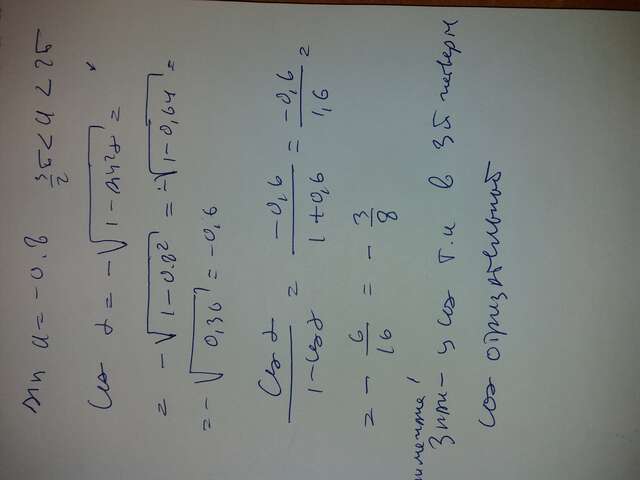 sin α = -0.8    3/2 π < α < 2π
Cos α = -√(1 - sin²α) =
= -√(1 - 0.8²) = -√(1 - 0,64) =
= -√(0,36) = -0,6
Cos α / (1 - cos α) = -0,6 / (1 + 0,6) = -0,6 / 1,6 =
= - 6/16 = - 3/8
Знак - у cos т.к в 3й четверти
cos отризательной